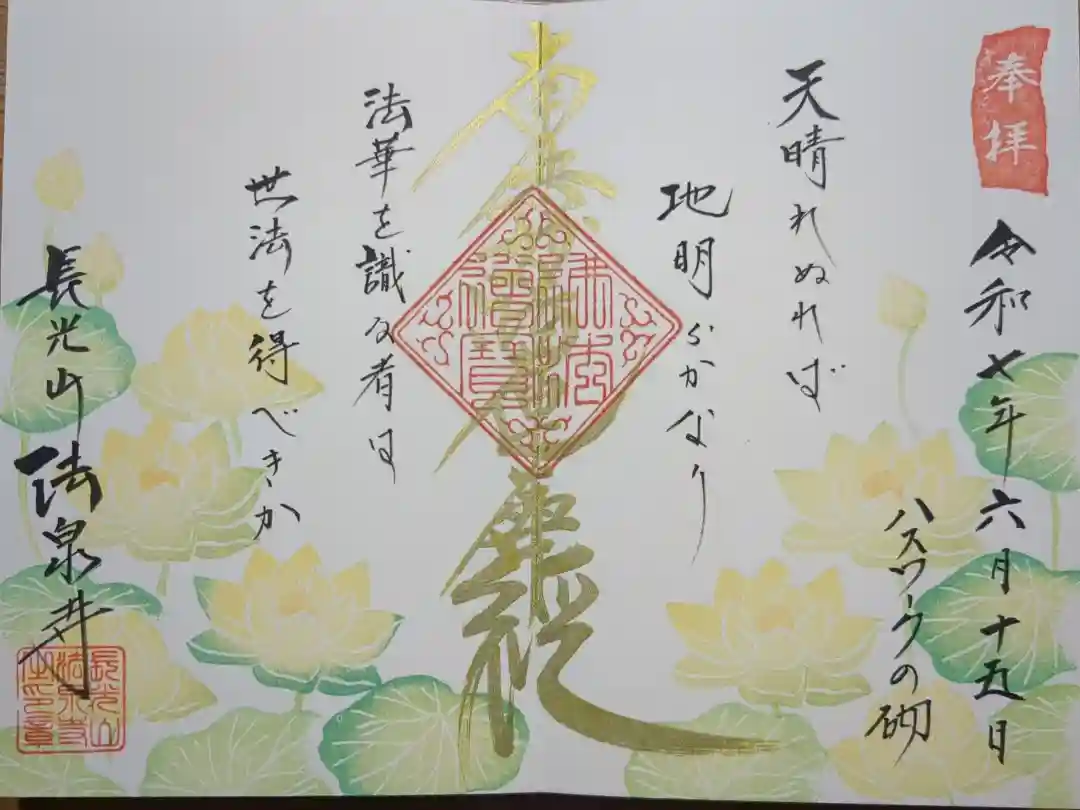 奉拝
令和七年六月十五日
ハスワークの砌
天晴れぬれば
地明らかなり
南無妙法蓮華経
法華を識る者は
世法を得べきか
長光山法泉寺
長光山
法泉寺
之印章